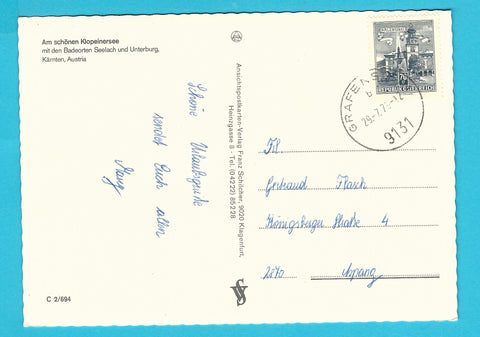 Am schönen Klopeinersee
mit den Badeorten Seelach und Unterburg,
Kärnten, Austria
Schöne Urlaubsgrüße
sendet Euch allen
C 2/694
Ansichtspostkarten-Verlag Franz Schilcher, 9020 Klagenfurt,
Heinzgasse 8 - Tel. (04222) 85228
REPUBLIK ÖSTERREICH
9131
Frl.
Gertraud Flasch
Königsberger Straße 4
2870 Aspang